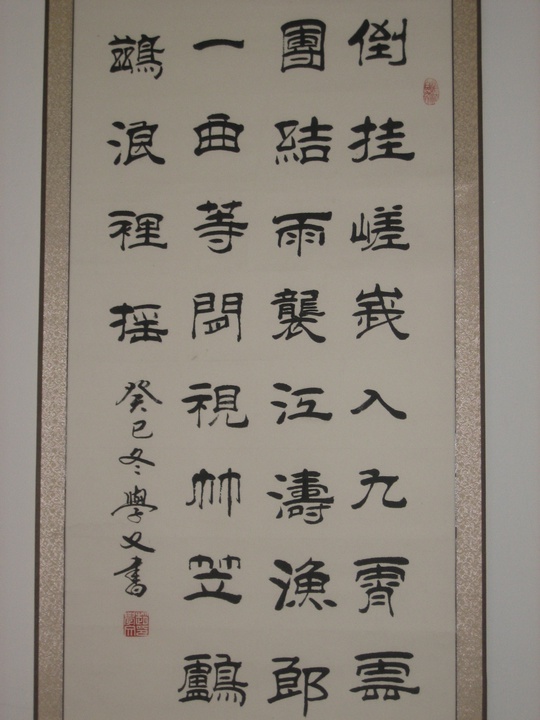 倒挂嵯峩入九霄雲
團結雨襲江濤漁郎
一曲等閒視竹笠鸕
鷀浪裡摇
癸巳冬學文書